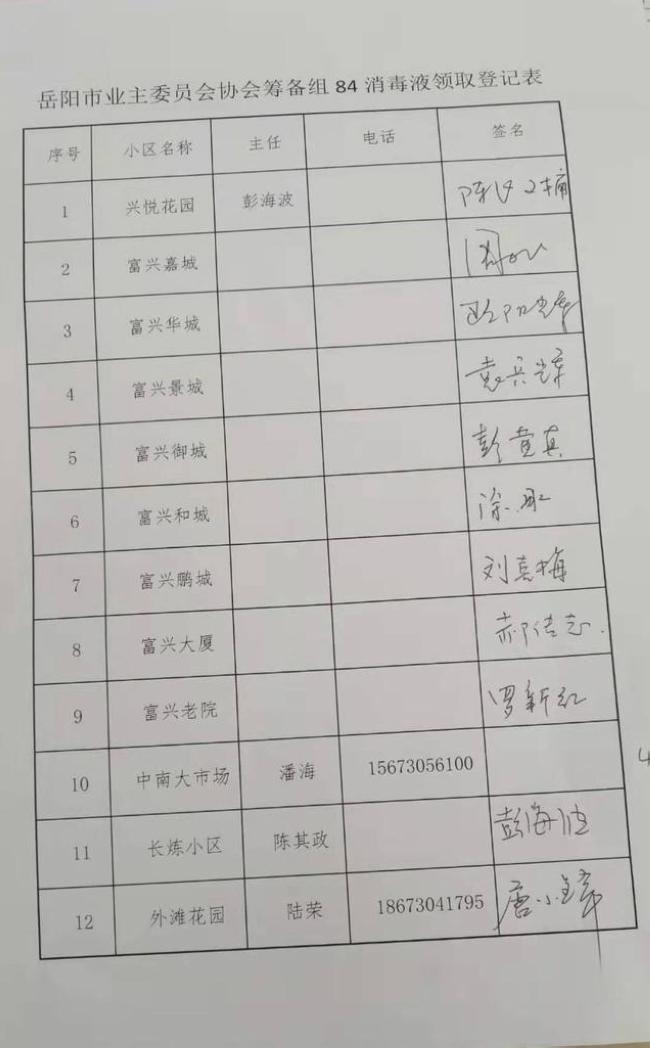 岳阳市业主委员会协会筹备组 84 消毒液领取登记表
序号 小区名称 主任 电话 签名
1 兴悦花园 彭海波
2 富兴嘉城
3 富兴华城 欧阳
4 富兴景城 袁兵辉
5 富兴御城 彭黄真
6 富兴和城 徐
7 富兴鹏城 刘喜梅
8 富兴大厦 郝传志
9 富兴老院 罗新红
10 中南大市场 潘海 15673056100
11 长炼小区 陈其政 彭海波
12 外滩花园 陆荣 18673041795 唐小